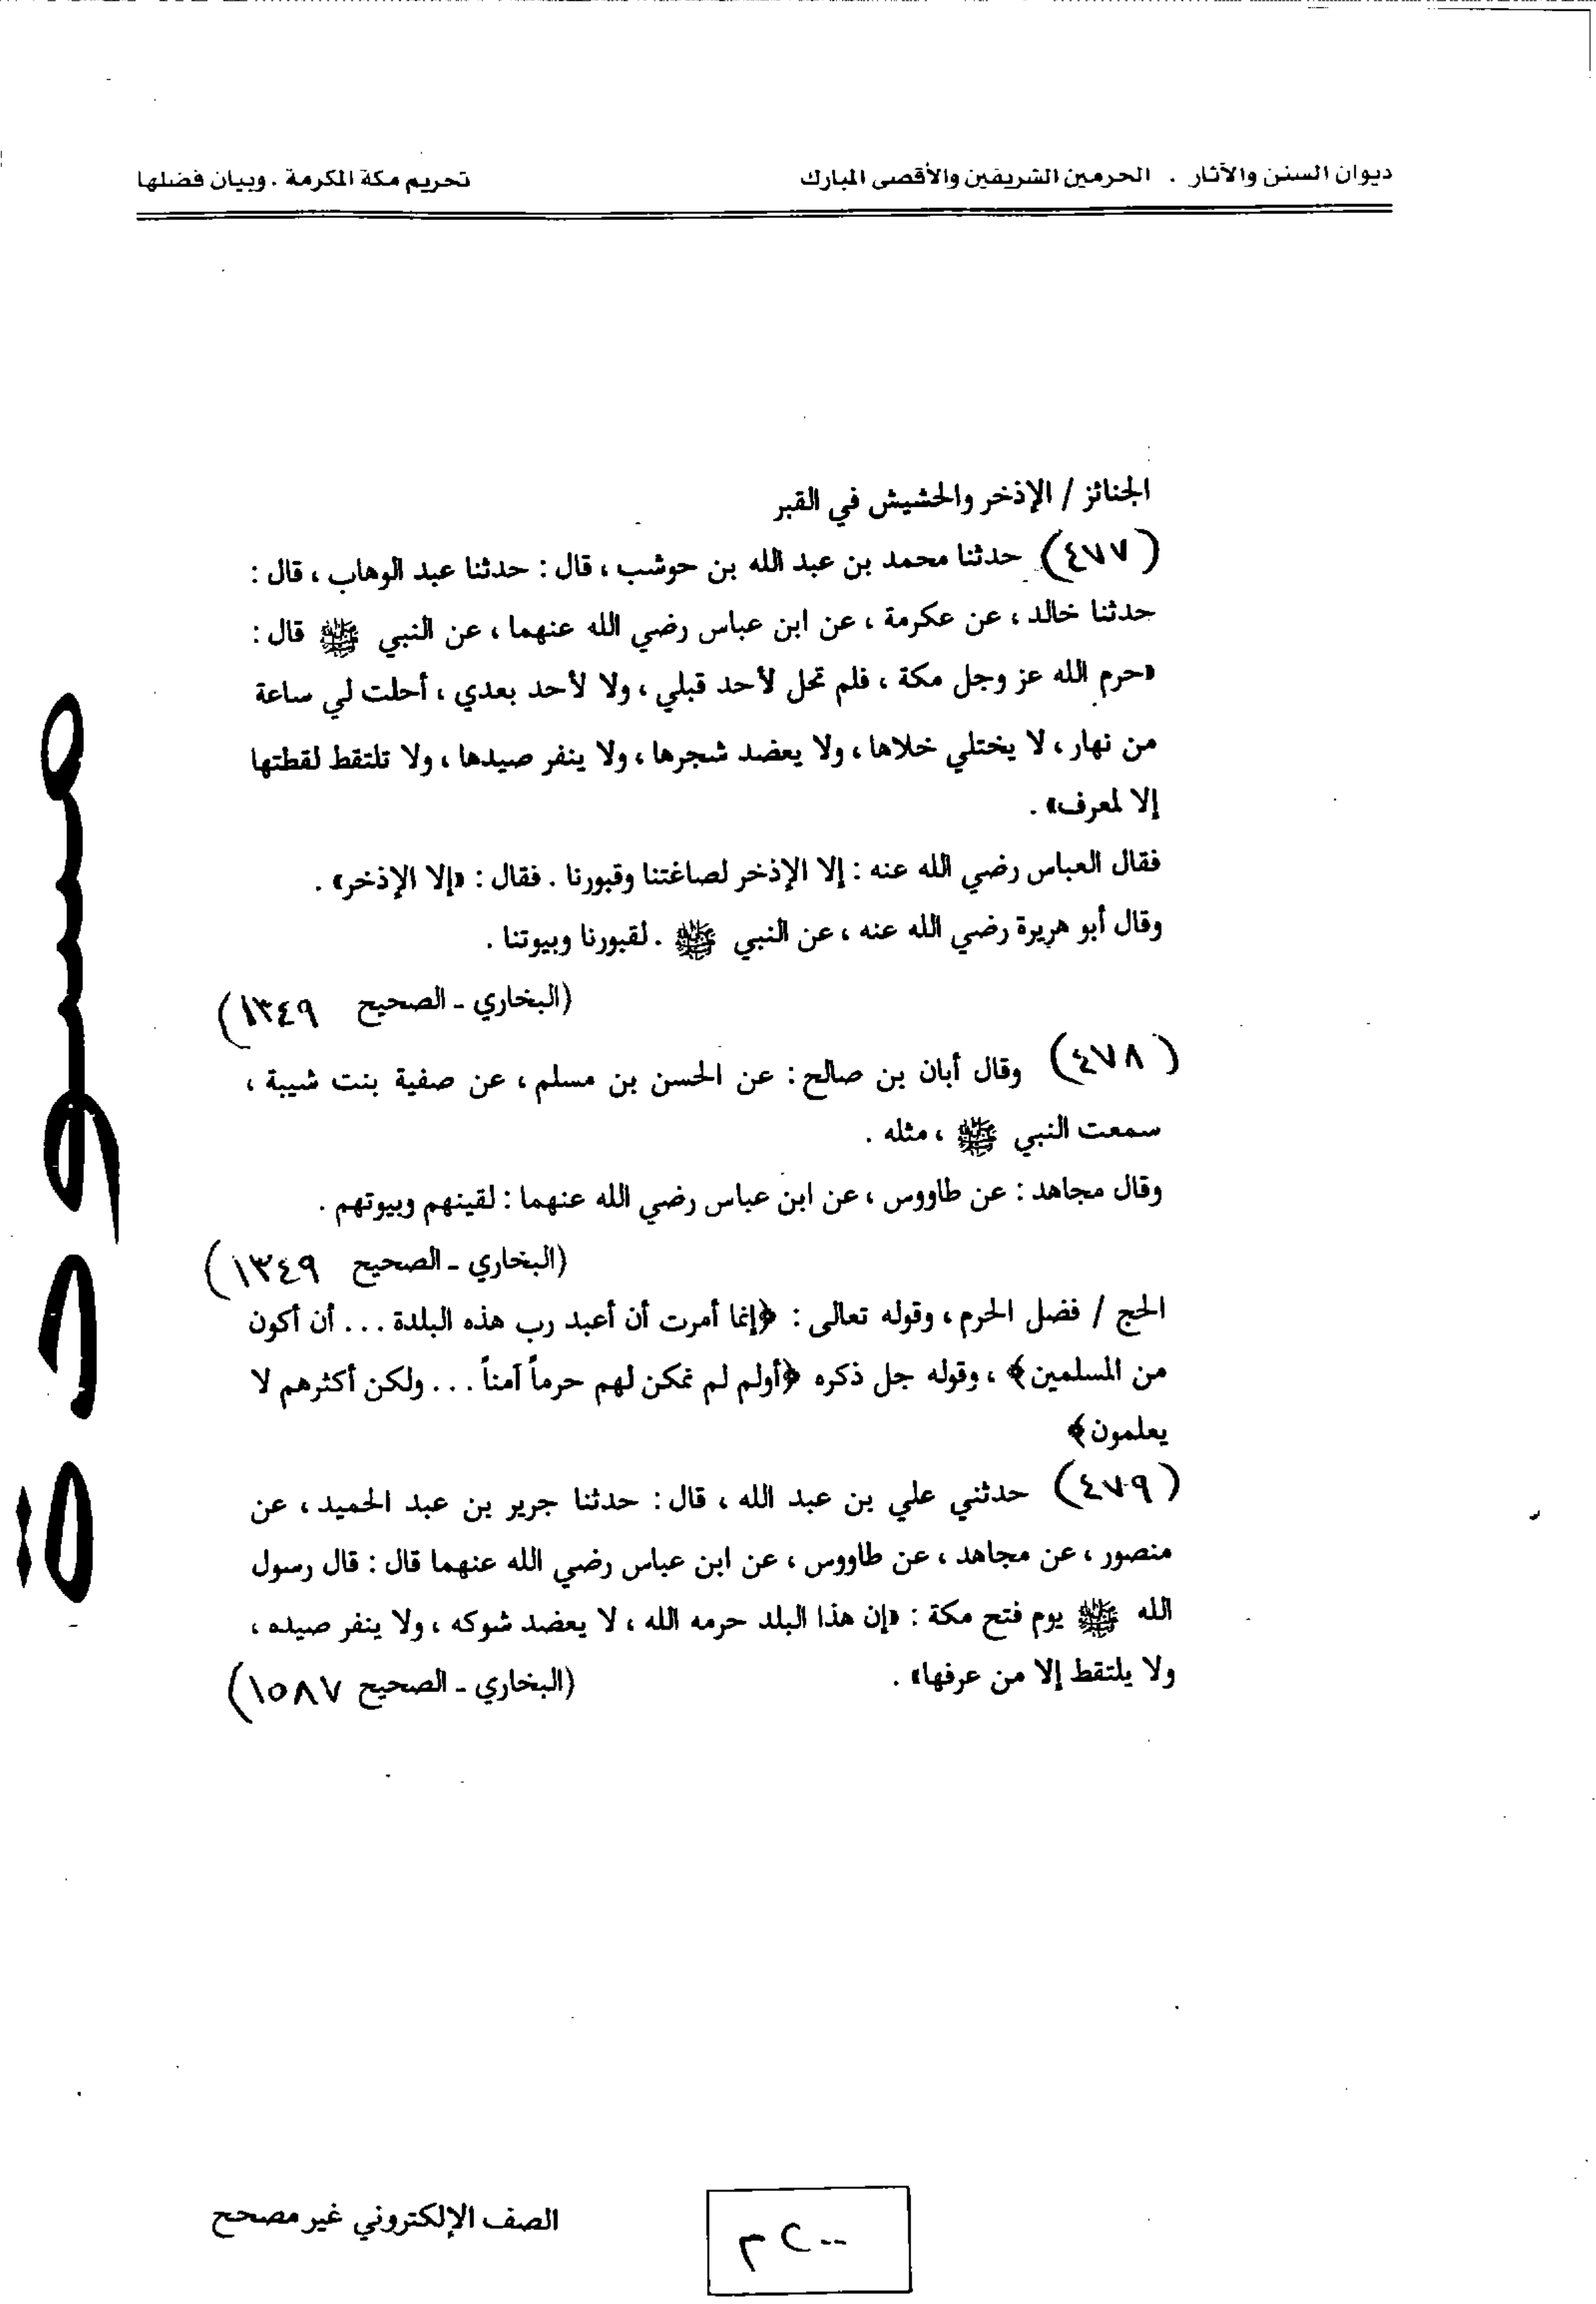 ديوان السنن والآثار . الحرمين الشريفين والأقصى المبارك
تحريم مكة المكرمة . وبيان فضلها
الجنائز / الإذخر والحشيش في القبر
(٤٧٧) حدثنا محمد بن عبد الله بن حوشب ، قال : حدثنا عبد الوهاب ، قال :
حدثنا خالد ، عن عكرمة ، عن ابن عباس رضي الله عنهما ، عن النبي ﷺ قال :
«حرم الله عز وجل مكة ، فلم تحل لأحد قبلي ، ولا لأحد بعدي ، أحلت لي ساعة
من نهار ، لا يختلي خلاها ، ولا يعضد شجرها ، ولا ينفر صيدها ، ولا تلتقط لقطتها
إلا لمعرف» .
فقال العباس رضي الله عنه : إلا الإذخر لصاغتنا وقبورنا . فقال : «إلا الإذخر» .
وقال أبو هريرة رضي الله عنه ، عن النبي ﷺ . لقبورنا وبيوتنا .
(البخاري - الصحيح ١٣٤٩)
(٤٧٨) وقال أبان بن صالح : عن الحسن بن مسلم ، عن صفية بنت شيبة ،
سمعت النبي ﷺ ، مثله .
وقال مجاهد : عن طاووس ، عن ابن عباس رضي الله عنهما : لقينهم وبيوتهم .
(البخاري - الصحيح ١٣٤٩)
الحج / فضل الحرم ، وقوله تعالى : ﴿إنما أمرت أن أعبد رب هذه البلدة ... أن أكون
من المسلمين﴾ ، وقوله جل ذكره ﴿أولم لم نمكن لهم حرماً آمناً ... ولكن أكثرهم لا
يعلمون﴾
(٤٧٩) حدثني علي بن عبد الله ، قال : حدثنا جرير بن عبد الحميد ، عن
منصور ، عن مجاهد ، عن طاووس ، عن ابن عباس رضي الله عنهما قال : قال رسول
الله ﷺ يوم فتح مكة : «إن هذا البلد حرمه الله ، لا يعضد شوكه ، ولا ينفر صيده ،
ولا يلتقط إلا من عرفها» . (البخاري - الصحيح ١٥٨٧)
مسودة
الصف الإلكتروني غير مصحح